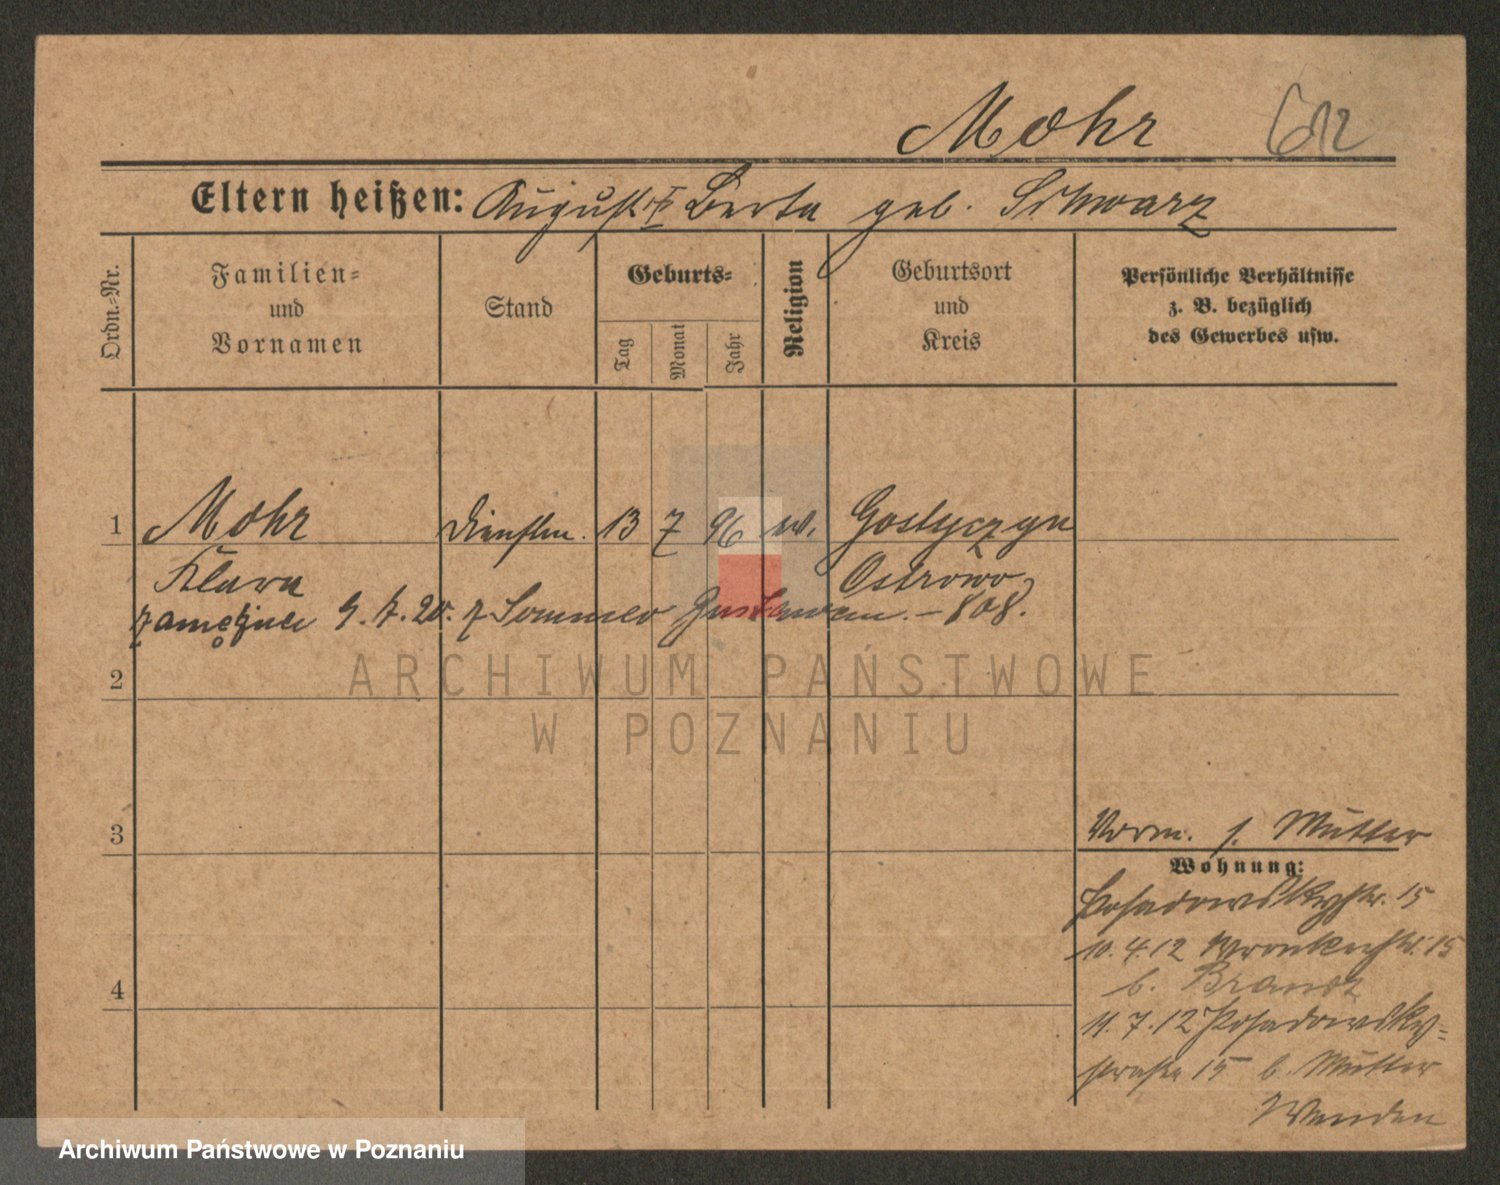 Mohr 612
Eltern heißen: August u. Berta geb. Schwarz
Ordn.-Nr.
Familien-
und
Vornamen
Stand
Geburts-
Tag
Monat
Jahr
Religion
Geburtsort
und
Kreis
Persönliche Verhältnisse
z. B. bezüglich
des Gewerbes usw.
1 Mohr Dienstm. 13 7 96 ev. Gostyczyn
Klara Ostrowo
zamężnee 9. 7. 20. z Sommer Gustawem. - 808.
2
3
Vorm. s. Mutter
Wohnung:
Posadowskystr. 15
10.4.12 Wronkerstr. 15
b. Brandt
11.7.12 Posadowsky=
straße 15 b. Mutter
Wenden
4
ARCHIWUM PAŃSTWOWE
W POZNANIU
Archiwum Państwowe w Poznaniu